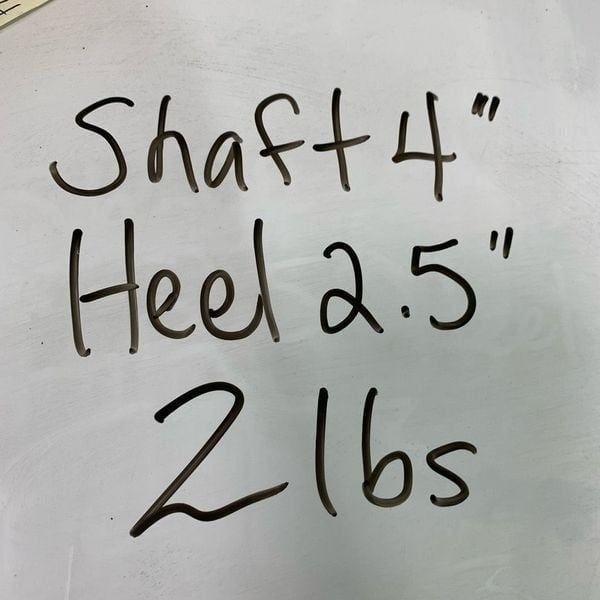 Shaft 4"
Heel 2.5"
2 lbs